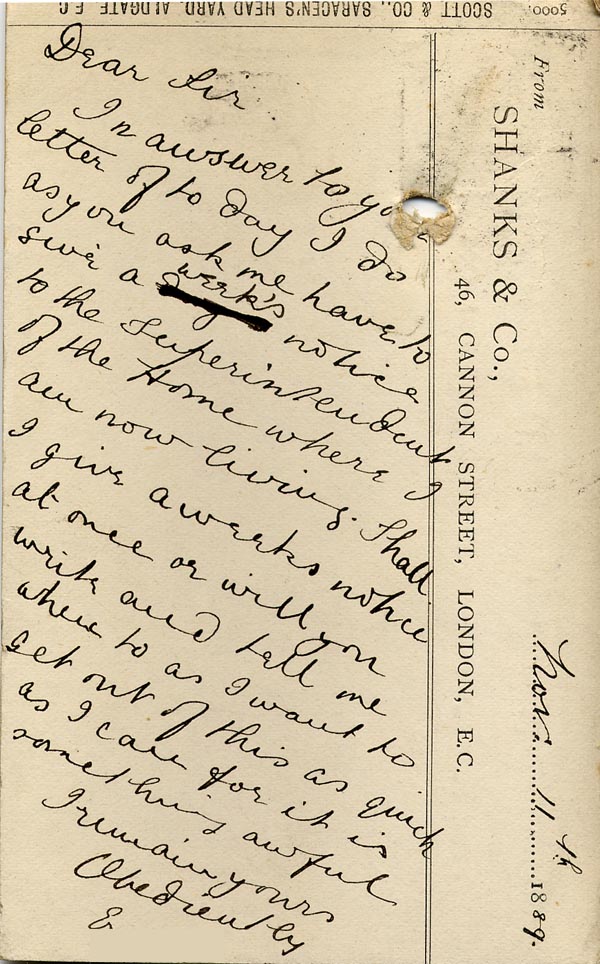 5000. SCOTT & CO., SARACEN'S HEAD YARD, ALDGATE, E.C
From
SHANKS & Co.,
46, CANNON STREET, LONDON, E.C.
Nov. 11th 1889.
Dear Sir
In answer to your
letter of to day I do
as you ask me have to
give a week's notice
to the Superintendent
of the Home where I
am now living. Shall
I give a weeks notice
at once or will you
write and tell me
when to as I want to
get out of this as quick
as I can for it is
something awful
I remain yours
Obediently
E